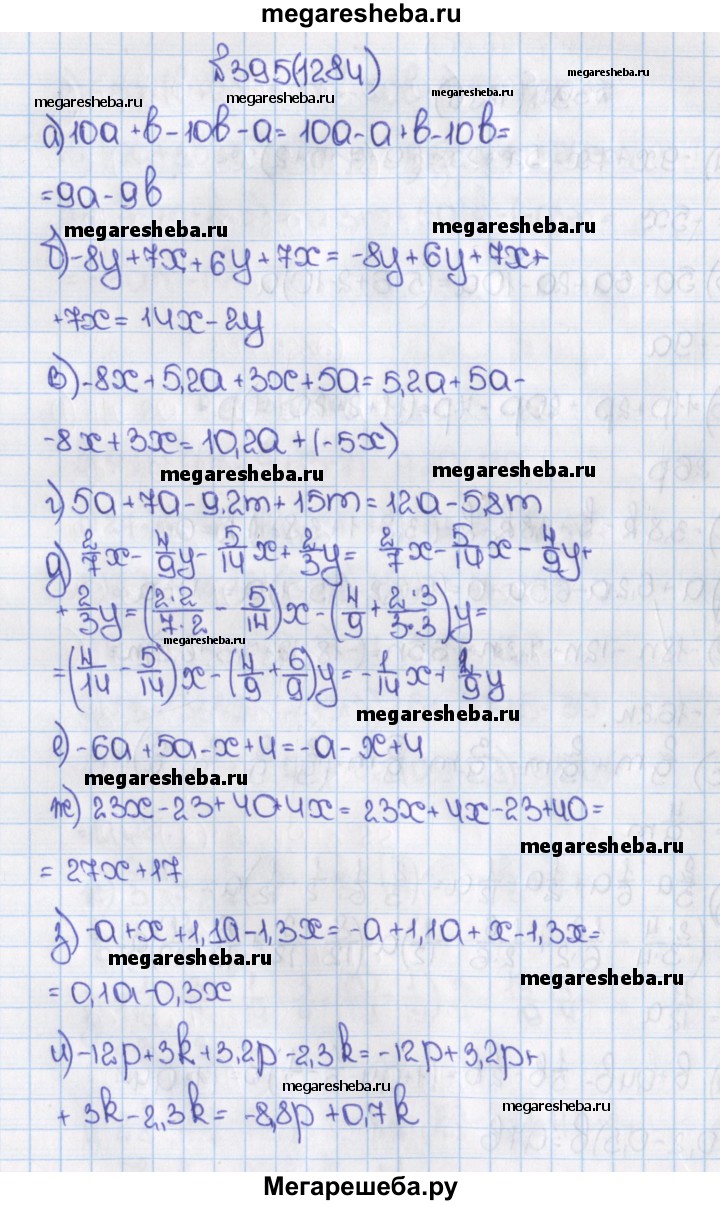 megaresheba.ru
№395(1284)
megaresheba.ru
megaresheba.ru
megaresheba.ru
а) 10a + b - 10b - a = 10a - a + b - 10b =
= 9a - 9b
megaresheba.ru
megaresheba.ru
б) -8y + 7x + 6y + 7x = -8y + 6y + 7x +
+ 7x = 14x - 2y
в) -8x + 5,2a + 3x + 5a = 5,2a + 5a -
- 8x + 3x = 10,2a + (-5x)
megaresheba.ru
megaresheba.ru
г) 5a + 7a - 9.2m + 15m = 12a - 5,8m
д) 2/7 x - 4/9 y - 5/14 x + 2/3 y = 2/7 x - 5/14 x - 4/9 y +
+ 2/3 y = (2·2/7·2 - 5/14)x - (4/9 + 2·3/3·3)y =
megaresheba.ru
= (4/14 - 5/14)x - (4/9 + 6/9)y = -1/14 x + 1/9 y
megaresheba.ru
е) -6a + 5a - x + 4 = -a - x + 4
megaresheba.ru
ж) 23x - 23 + 40 + 4x = 23x + 4x - 23 + 40 =
megaresheba.ru
= 27x + 17
з) -a + x + 1,1a - 1,3x = -a + 1,1a + x - 1,3x =
megaresheba.ru
megaresheba.ru
= 0,1a - 0,3x
и) -12p + 3k + 3,2p - 2,3k = -12p + 3,2p +
megaresheba.ru
megaresheba.ru
+ 3k - 2,3k = -8,8p + 0,7k
Мегарешеба.ру